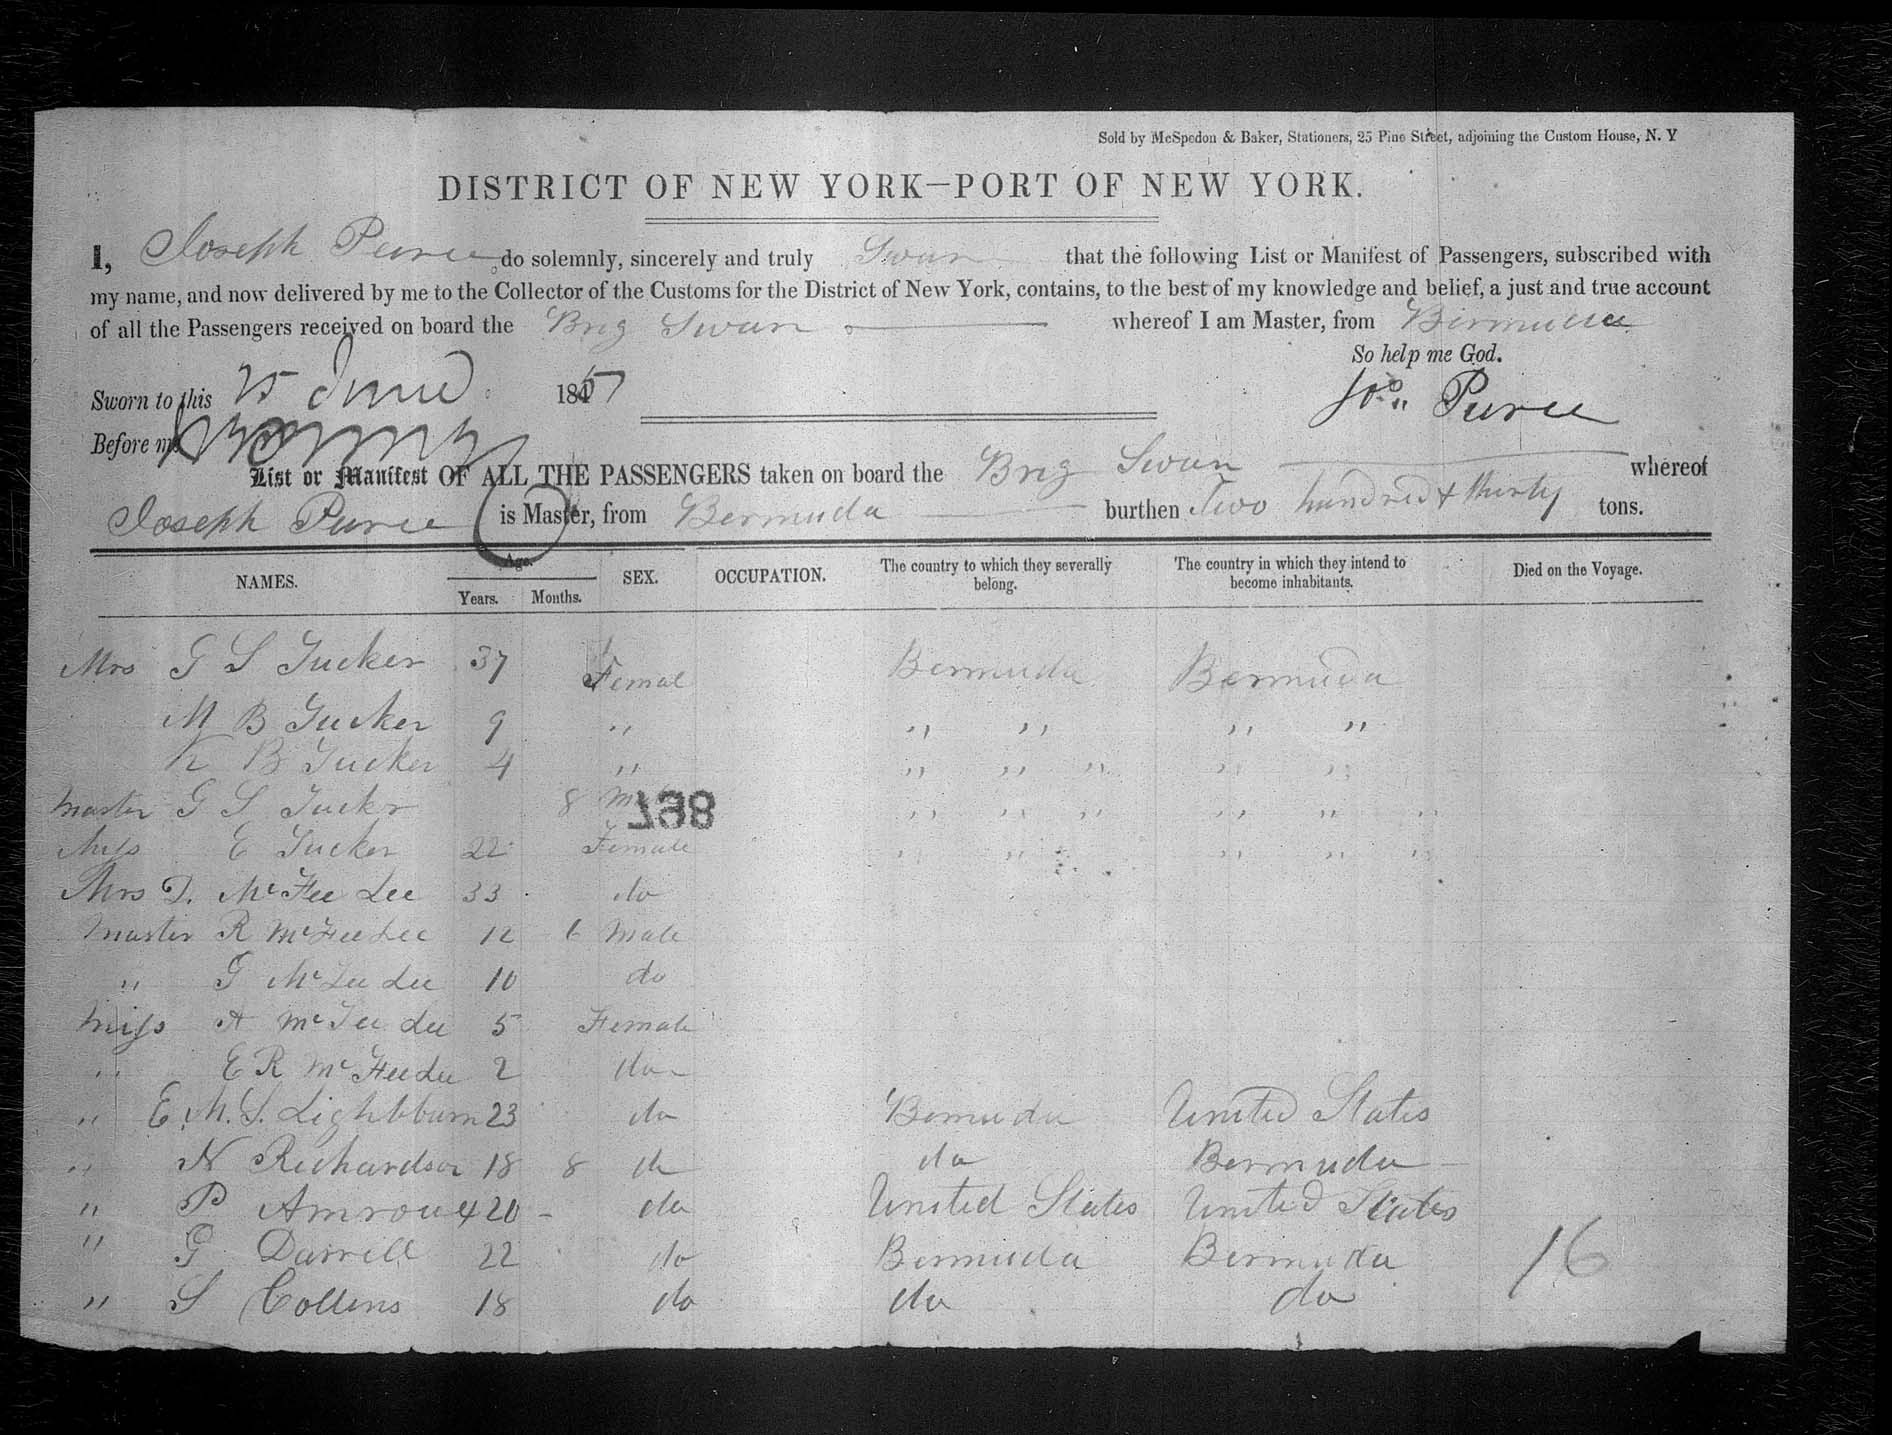 Sold by McSpedon & Baker, Stationers, 25 Pine Street, adjoining the Custom House, N. Y
DISTRICT OF NEW YORK—PORT OF NEW YORK.
I, Joseph Purce do solemnly, sincerely and truly Swear that the following List or Manifest of Passengers, subscribed with
my name, and now delivered by me to the Collector of the Customs for the District of New York, contains, to the best of my knowledge and belief, a just and true account
of all the Passengers received on board the Brig Swan whereof I am Master, from Bermuda
So help me God.
Sworn to this 25 June 184
Jos Purce
Before me
List or Manifest OF ALL THE PASSENGERS taken on board the Brig Swan whereof
Joseph Purce is Master, from Bermuda burthen Two hundred & thirty tons.
NAMES. Age. Years. Months. SEX. OCCUPATION. The country to which they severally belong. The country in which they intend to become inhabitants. Died on the Voyage.
Mrs G S Tucker 37 Femal Bermuda Bermuda
M B Tucker 9 " " " " "
K B Tucker 4 " " " " " "
Master G S Tuckr 8 M " " " " " "
798
Miss E Tucker 22 Female " " " " "
Mrs D. McFee Lee 33 do
Master R McFee Lee 12 6 Male
" G McFee Lee 10 do
Miss A McFee Lee 5 Female
" E R McFee Lee 2 do
" E. M. S. Lightbourn 23 do Bermuda United States
" N Richardson 18 8 do do Bermuda
" P 20 - do United States United States
" G Darrell 22 do Bermuda Bermuda
16
" S Collins 18 do do do